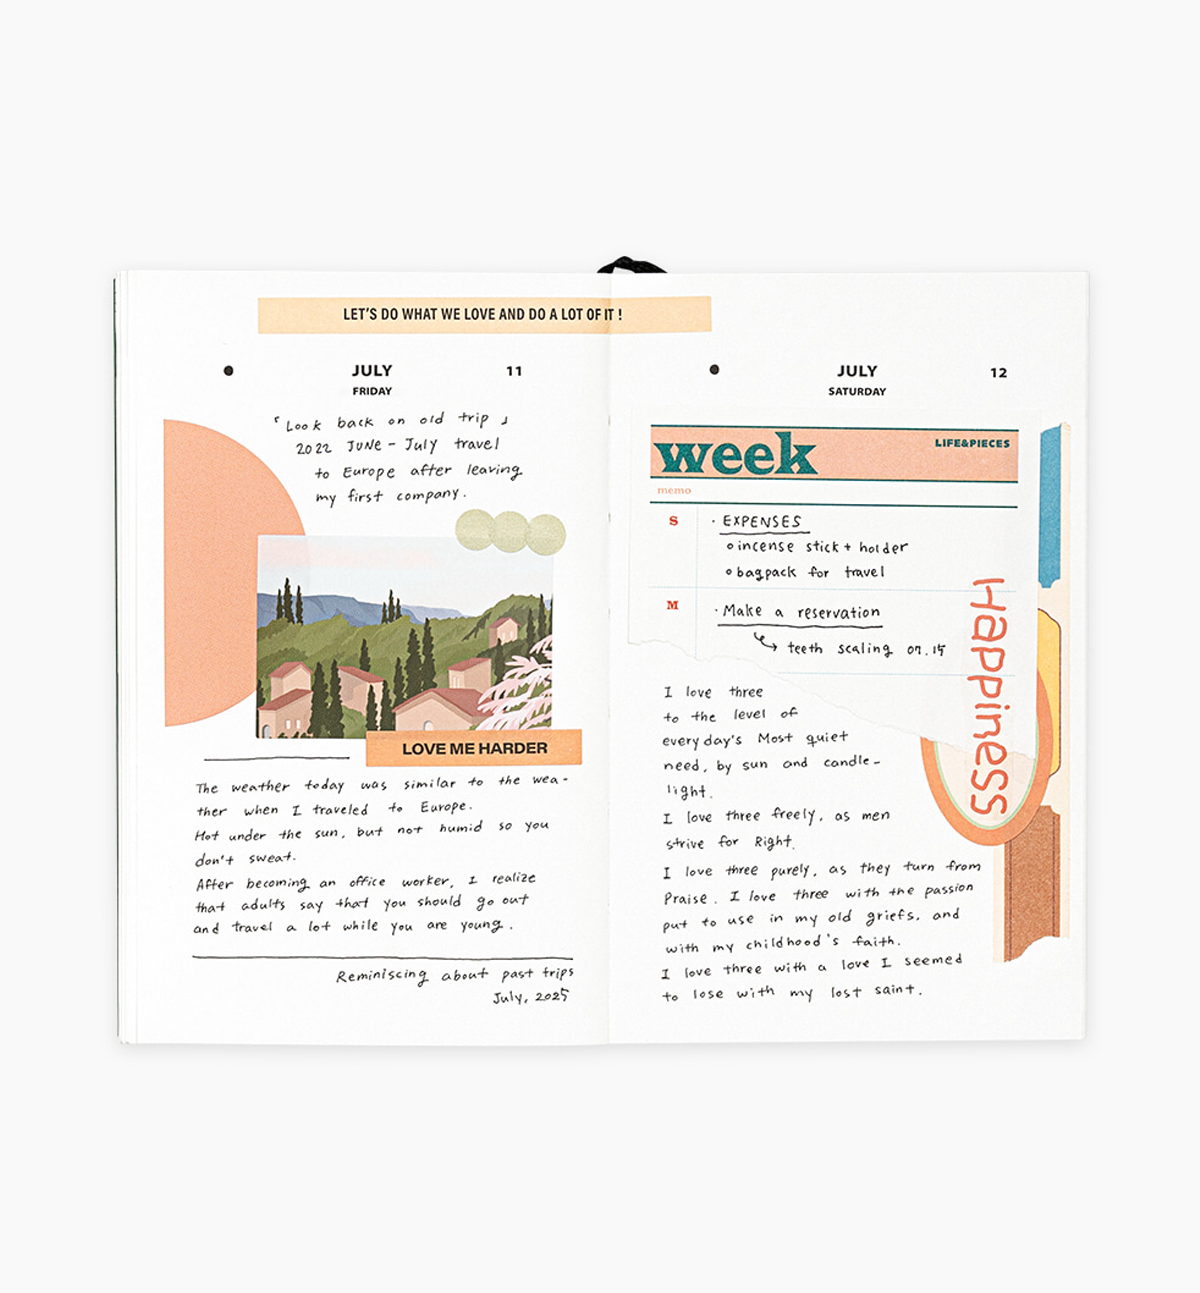 LET'S DO WHAT WE LOVE AND DO A LOT OF IT !
JULY 11
FRIDAY
「Look back on old trip 」
2022 JUNE - July travel
to Europe after leaving
my first company.
LOVE ME HARDER
The weather today was similar to the wea-
ther when I traveled to Europe.
Hot under the sun, but not humid so you
don't sweat.
After becoming an office worker, I realize
that adults say that you should go out
and travel a lot while you are young.
Reminiscing about past trips
July, 2025
JULY 12
SATURDAY
week
LIFE&PIECES
memo
S · EXPENSES
o incense stick + holder
• bagpack for travel
M · Make a reservation
↳ teeth scaling 07.15
Happiness
I love three
to the level of
everyday's Most quiet
need, by sun and candle-
light.
I love three freely, as men
strive for Right.
I love three purely, as they turn from
Praise. I love three with the passion
put to use in my old griefs, and
with my childhood's faith.
I love three with a love I seemed
to lose with my lost saint.